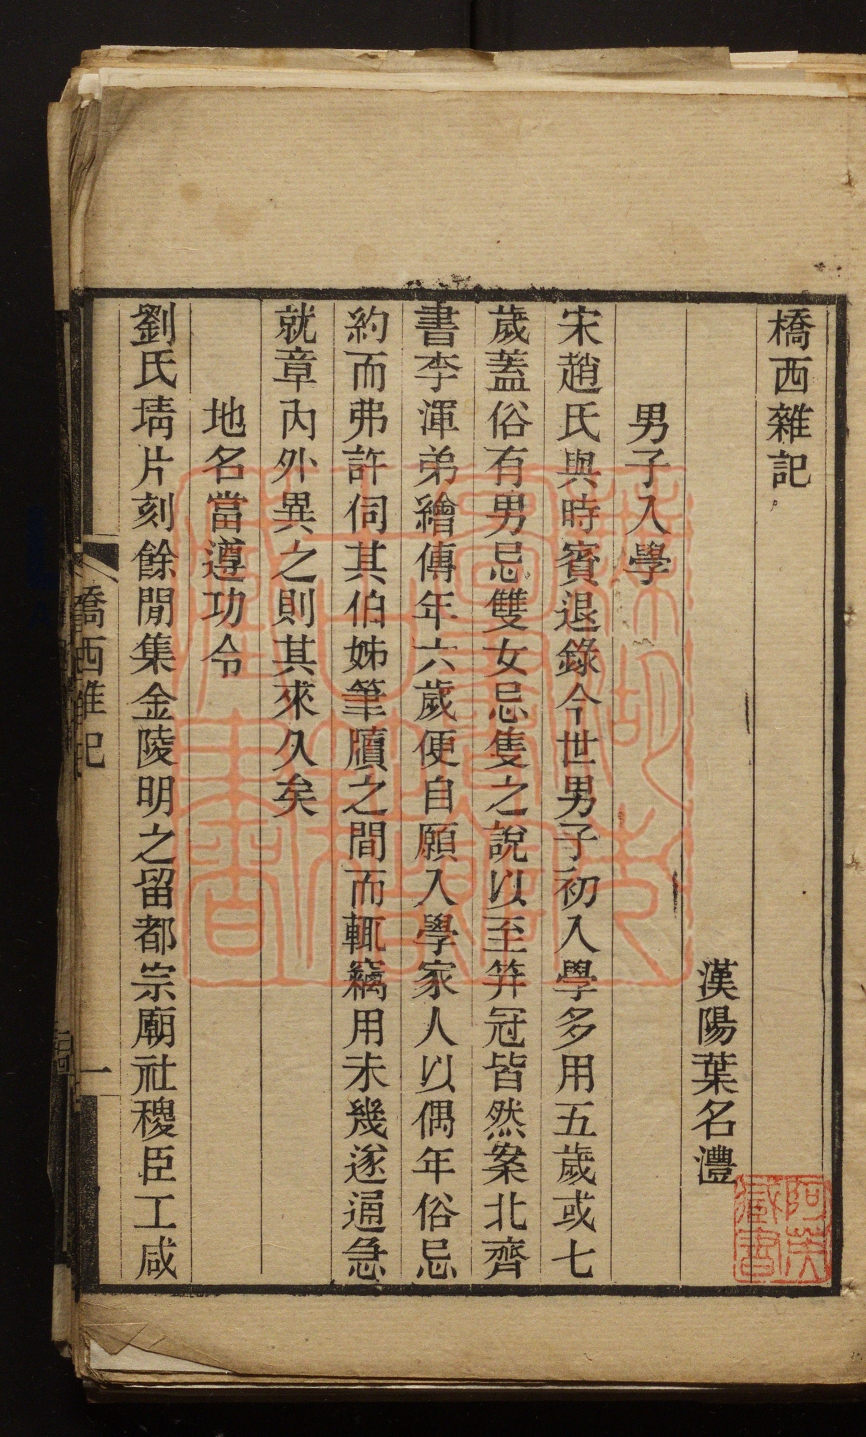 橋西雜記
漢陽葉名灃
男子入學
宋趙氏與時賓退錄今世男子初入學多用五歲或七
歲蓋俗有男忌雙女忌隻之說以至笄冠皆然案北齊
書李渾弟繪傳年六歲便自願入學家人以偶年俗忌
約而弗許伺其伯姊筆牘之間而輒竊用未幾遂通急
就章內外異之則其來久矣
地名當遵功令
劉氏埥片刻餘閒集金陵明之留都宗廟社稷臣工咸
橋西雜記
一